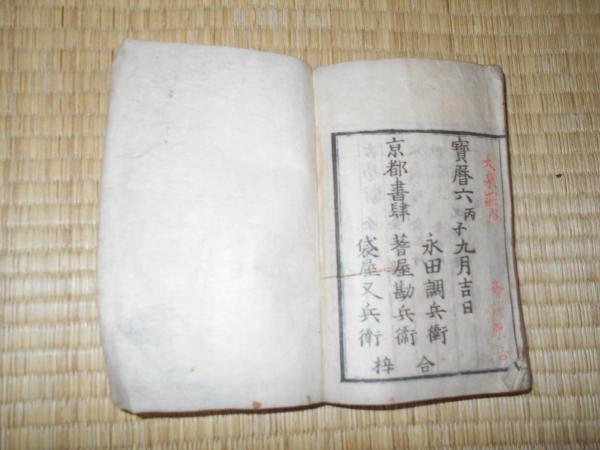 寶暦六丙子九月吉日
永田調兵衛
京都書肆 蓍屋勘兵衛
袋屋又兵衛
合梓